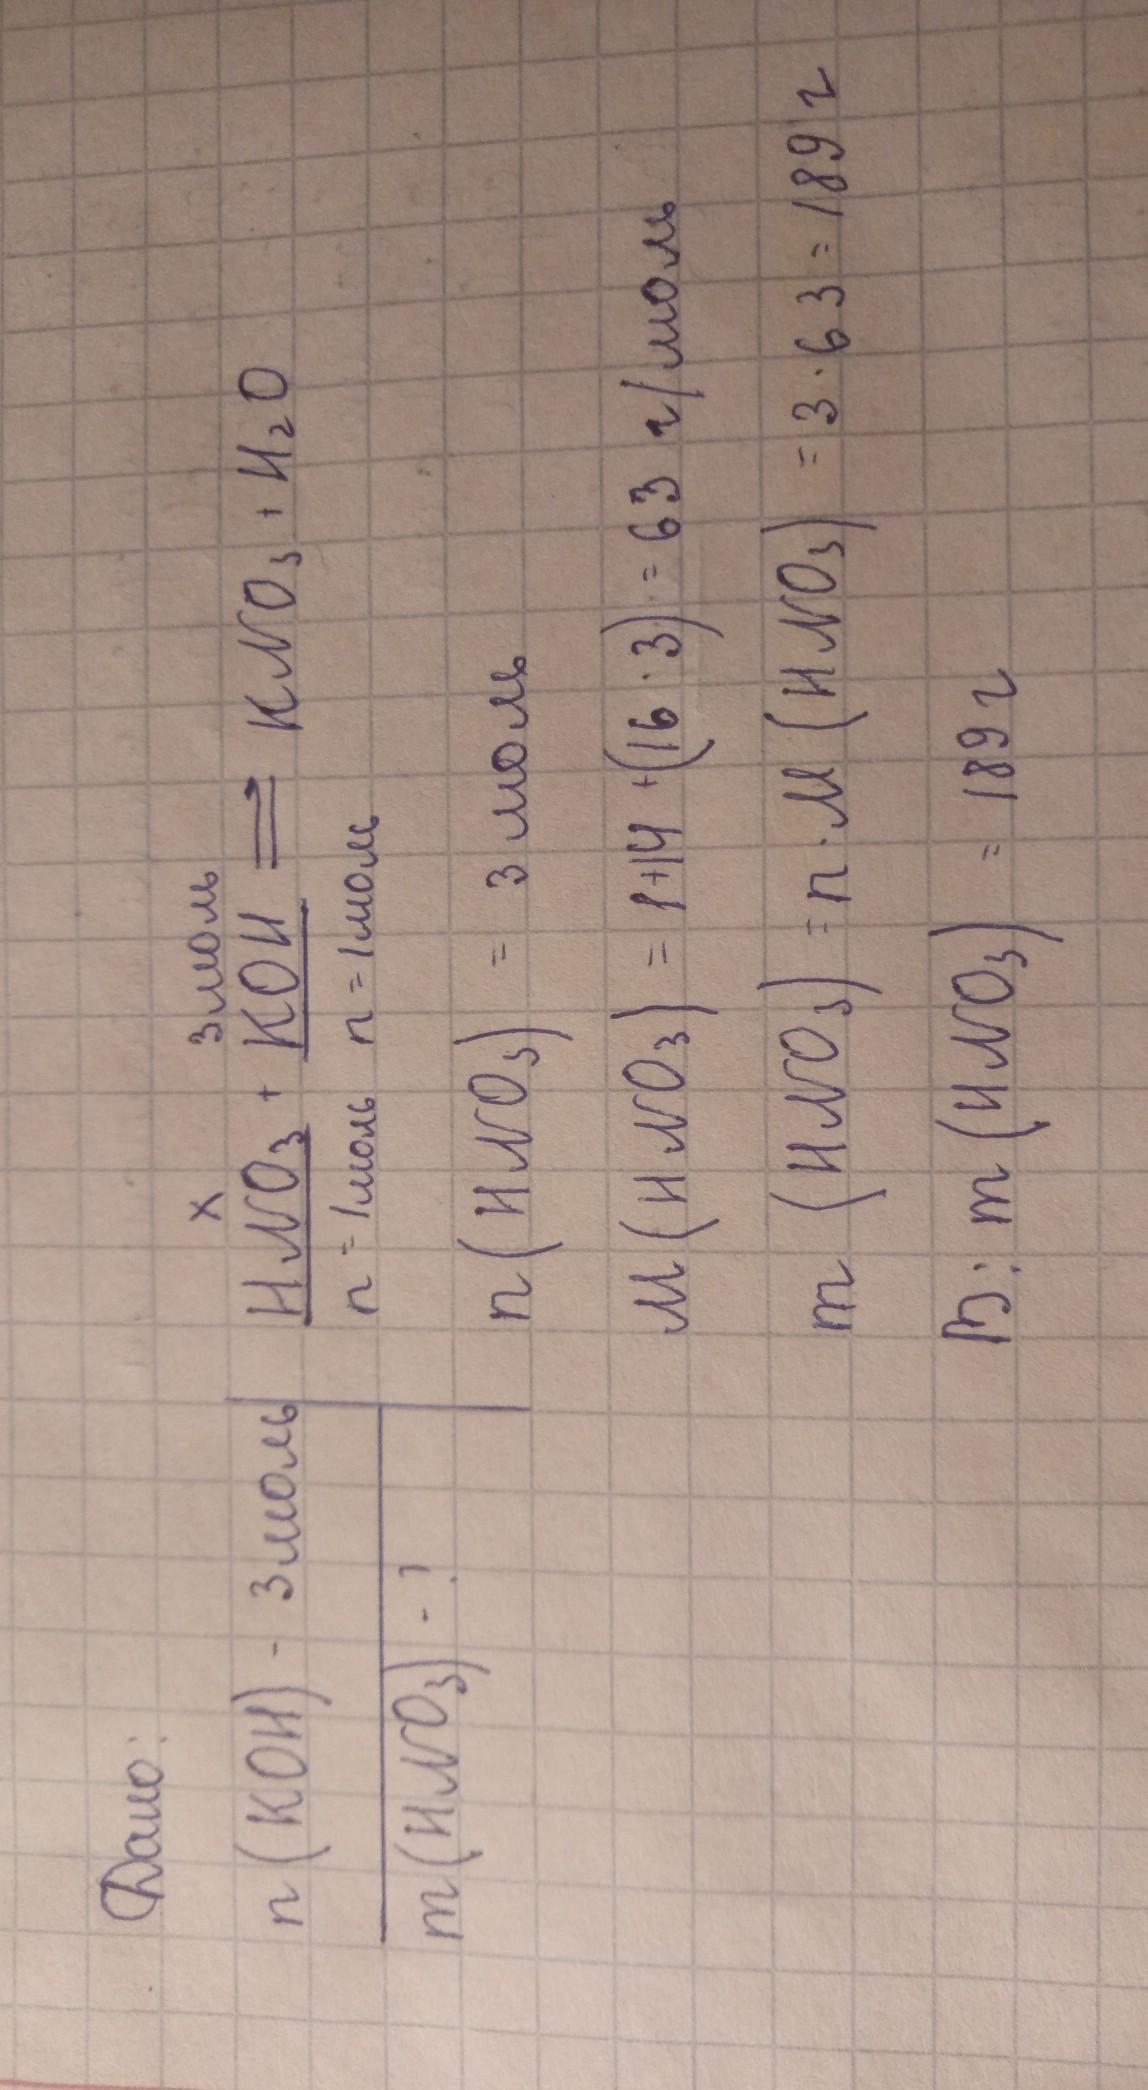 Дано:
n(KOH) - 3моль
m(HNO₃) - ?
x 3моль
HNO₃ + KOH = KNO₃ + H₂O
n = 1моль n = 1моль
n(HNO₃) = 3 моль
M(HNO₃) = 1+14+(16·3) = 63 г/моль
m (HNO₃) = n·M (HNO₃) = 3·63 = 189 г
В: m(HNO₃) = 189 г